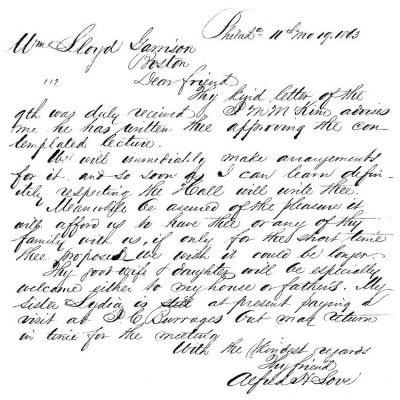 Philada 11th Mo 19. 1863
Wm Lloyd Garrison
Boston
Dear friend
Thy kind letter of the
9th was duly recieved J M McKim advises
me he has written thee approving the con-
templated lecture.
We will immediately make arrangements
for it. and so soon as I can learn defin-
itely respecting the Hall will write thee
Meanwhile be assured of the pleasure it
will afford us to have thee or any of thy
family with us, if only for the short time
thee proposed we wish it could be longer
Thy good wife & daughter will be especially
welcome either to my house or fathers. My
sister Lydia is still at present paying a
visit at J C Burrages but may return
in time for the meeting
With the kindest regards
Thy friend
Alfred H Love